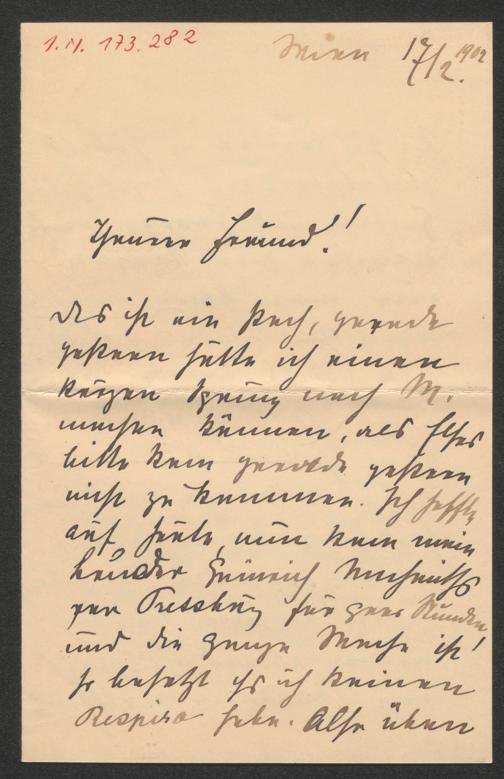 I.N. 173.282
Wien 17/2. 1902
Theurer Freund!
Das ist ein Pech, gerade
gestern hätte ich einen
kurzen Sprung nach M.
machen können, als
bitte kam gerade gestern
nicht zu kommen. Ich hoffte
auf heute, nun kam mein
Bruder Heinrich Nachmittags
per Pressburg für paar Stunden
und die ganze Woche ist
so besetzt daß ich keinen
Respiro habe. Also üben